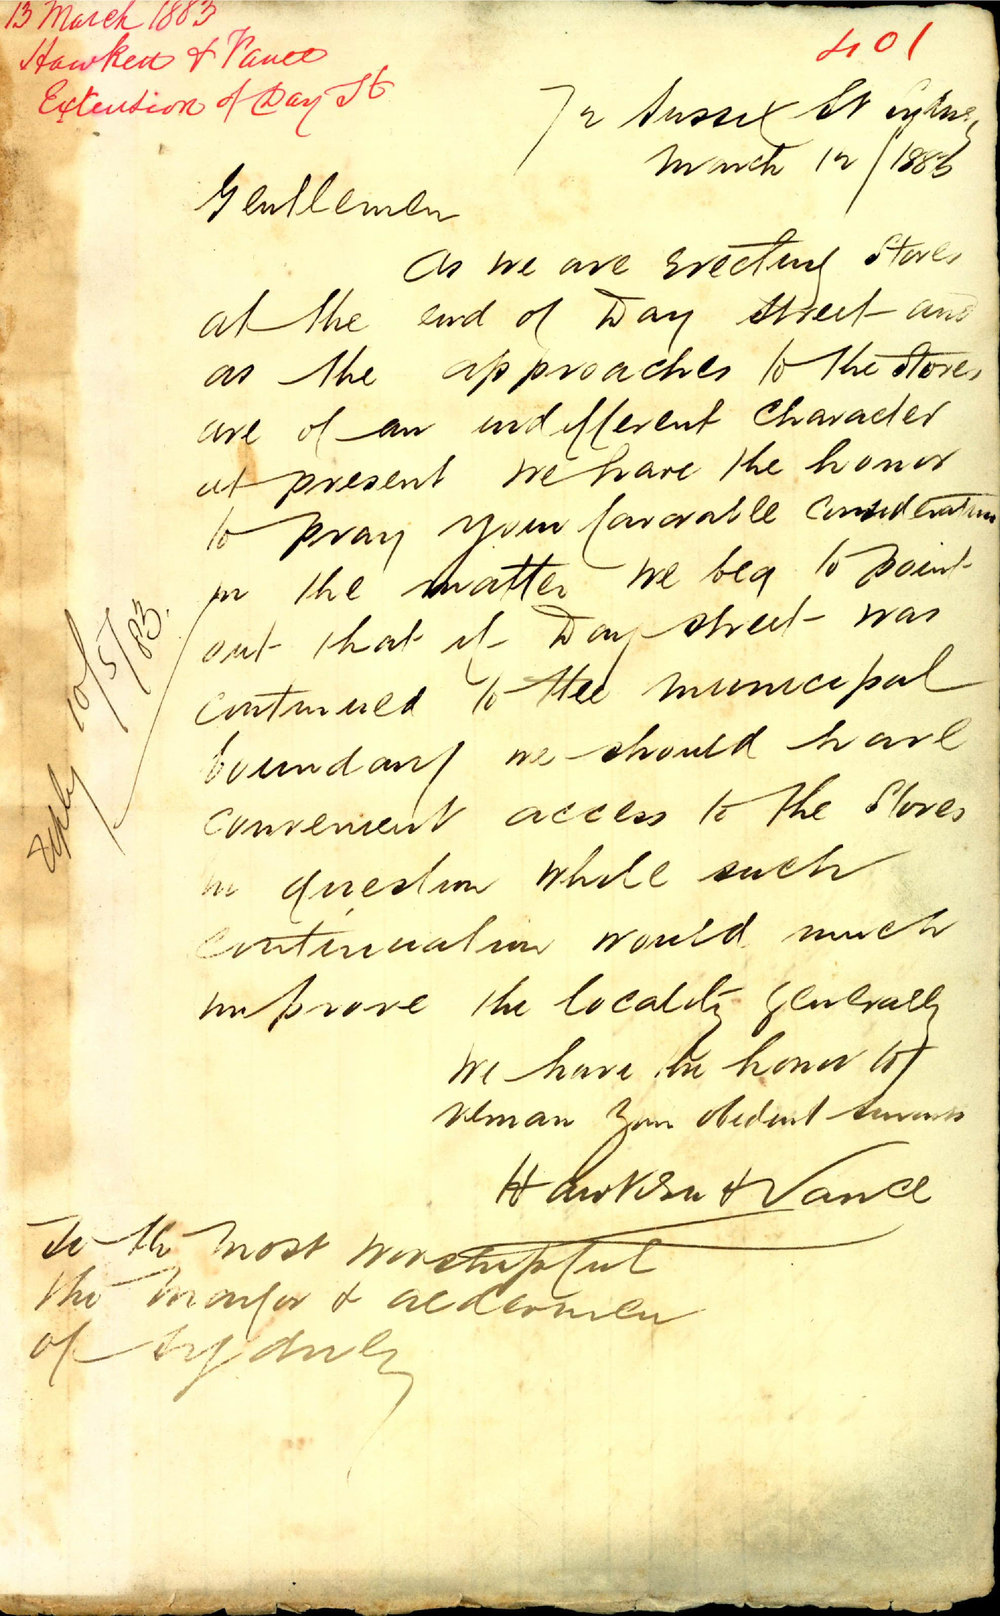 13 March 1883
Hawken & Vance
Extension of Day St
401
72 Sussex St Sydney
March 12/1883
Gentlemen
As we are erecting Stores
at the end of Day Street and
as the approaches to the Stores
are of an indifferent Character
at present we have the honor
to pray your favorable Consideration
in the matter we beg to point
out that if Day street was
continued to the municipal
boundary we should have
convenient access to the Stores
in question while such
continuation would much
improve the locality generally
We have the honor to
remain your obedient servants
Hawken & Vance
To the most worshipful
the Mayor & aldermen
of Sydney
Reply 10/5/83.